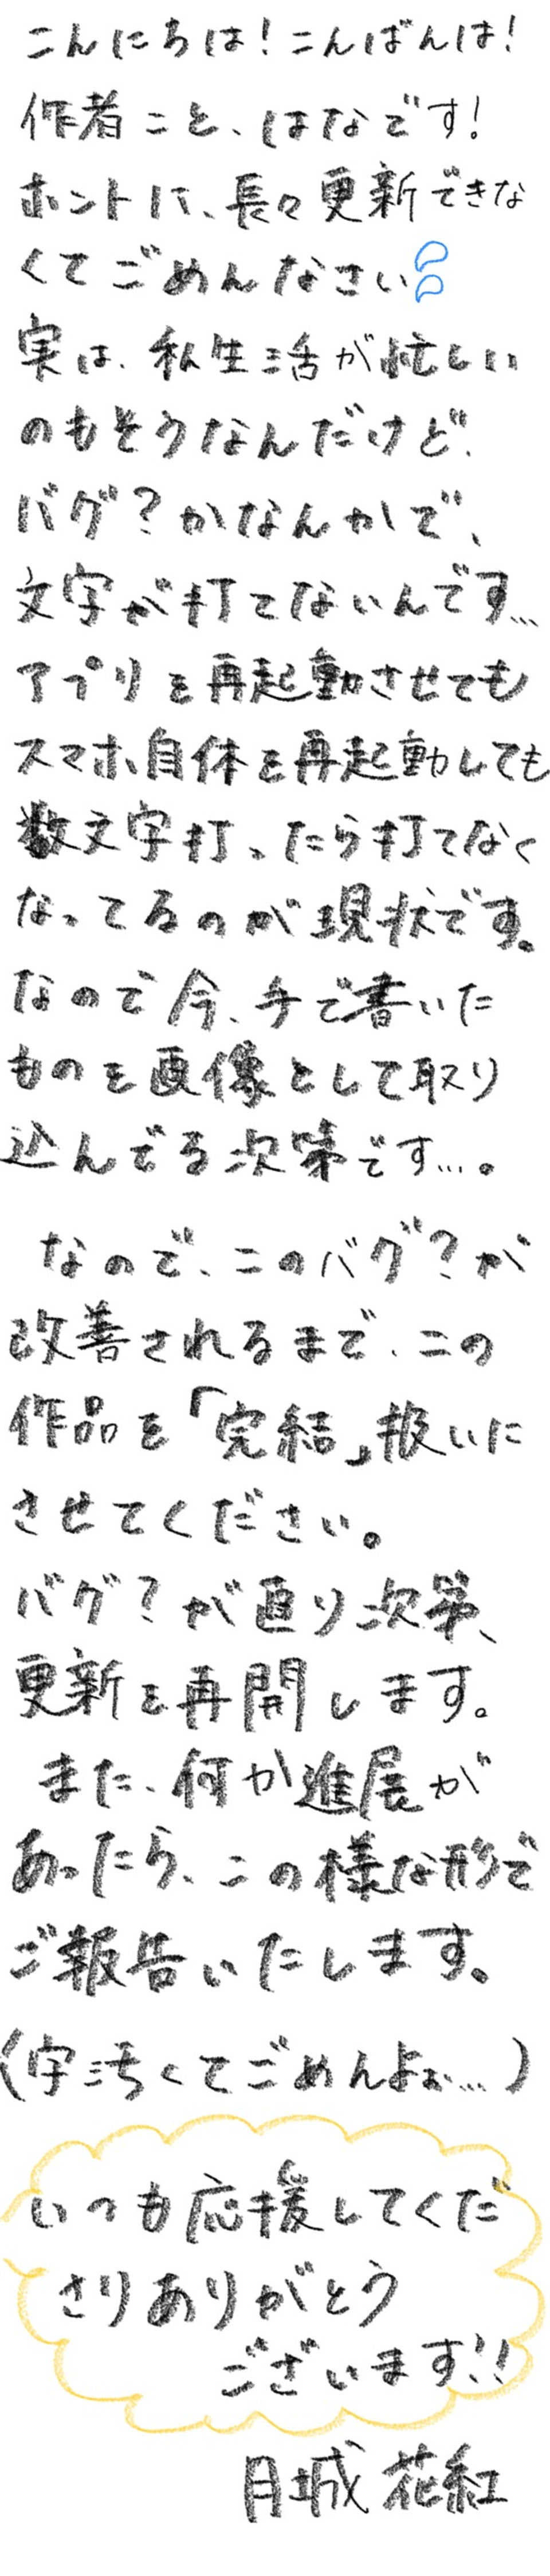 こんにちは!こんばんは!
作者こと、はなです!
ホントに、長々更新できな
くてごめんなさい
実は、私生活が忙しい
のもそうなんだけど、
バグ?かなんかで、
文字が打てないんです…
アプリを再起動させても
スマホ自体を再起動しても
数文字打ったら打てなく
なってるのが現状です。
なので今、手で書いた
ものを画像として取り
込んでる次第です…。
なので、このバグ?が
改善されるまで、この
作品を「完結」扱いに
させてください。
バグ?が直り次第、
更新を再開します。
また、何か進展が
あったら、この様な形で
ご報告いたします。
(字汚くてごめんよぉ…)
いつも応援してくだ
さりありがとう
ございます!!
月城 花紅